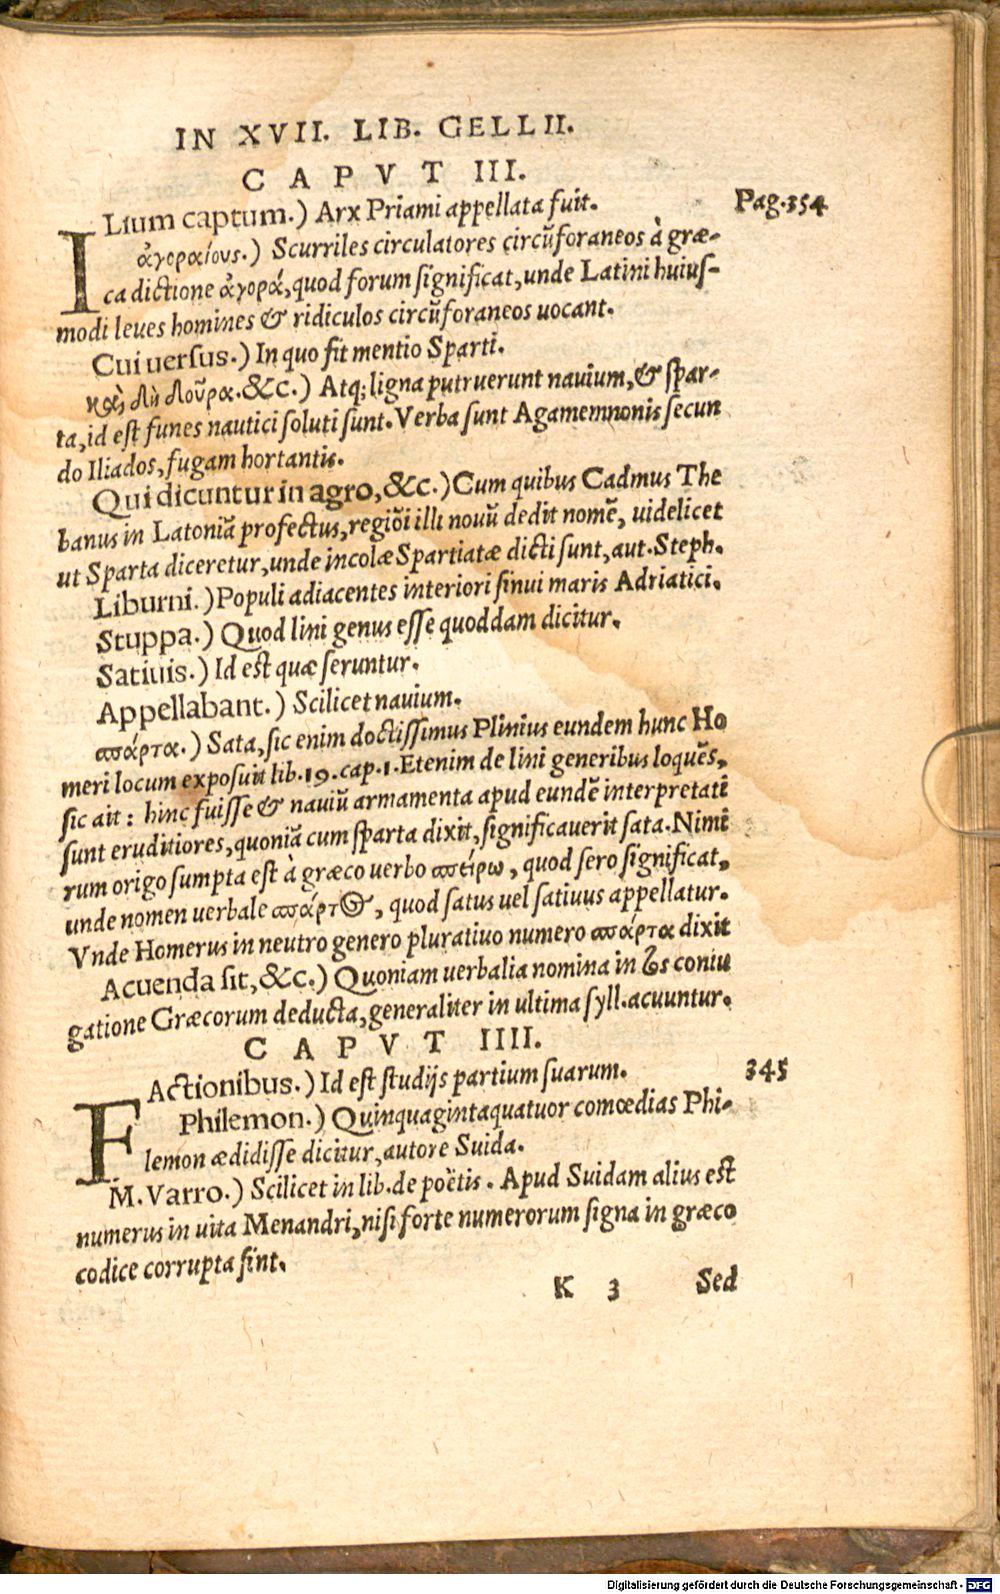 IN XVII. LIB. GELLII.
CAPVT III.
ILium captum.) Arx Priami appellata fuit. Pag.354
ἀγοραίους.) Scurriles circulatores circũforaneos à græ-
ca dictione ἀγορά, quod forum significat, unde Latini huius-
modi leues homines & ridiculos circũforaneos uocant.
Cui uersus.) In quo fit mentio Sparti.
καὶ δὴ δοῦρα.&c.) Atq; ligna putruerunt nauium, & spar-
ta, id est funes nautici soluti sunt. Verba sunt Agamemnonis secun
do Iliados, fugam hortantis.
Qui dicuntur in agro, &c.) Cum quibus Cadmus The
banus in Latoniã profectus, regiõi illi nouũ dedit nomẽ, uidelicet
ut Sparta diceretur, unde incolæ Spartiatæ dicti sunt, aut. Steph.
Liburni.) Populi adiacentes interiori sinui maris Adriatici.
Stuppa.) Quod lini genus esse quoddam dicitur.
Satiuis.) Id est quæ seruntur.
Appellabant.) Scilicet nauium.
σπάρτα.) Sata, sic enim doctissimus Plinius eundem hunc Ho
meri locum exposuit lib.19.cap.1. Etenim de lini generibus loquẽs,
sic ait: hinc fuisse & nauiũ armamenta apud eundẽ interpretati
sunt eruditiores, quoniã cum sparta dixit, significauerit sata. Nimi
rum origo sumpta est à græco uerbo σπείρω, quod sero significat,
unde nomen uerbale σπάρτος, quod satus uel satiuus appellatur.
Vnde Homerus in neutro genero pluratiuo numero σπάρτα dixit
Acuenda sit, &c.) Quoniam uerbalia nomina in τος coniu
gatione Græcorum deducta, generaliter in ultima syll. acuuntur.
CAPVT IIII.
FActionibus.) Id est studijs partium suarum. 345
Philemon.) Quinquagintaquatuor comœdias Phi-
lemon ædidisse dicitur, autore Suida.
M. Varro.) Scilicet in lib. de poëtis. Apud Suidam alius est
numerus in uita Menandri, nisi forte numerorum signa in græco
codice corrupta sint.
K 3 Sed
Digitalisierung gefördert durch die Deutsche Forschungsgemeinschaft - DFG